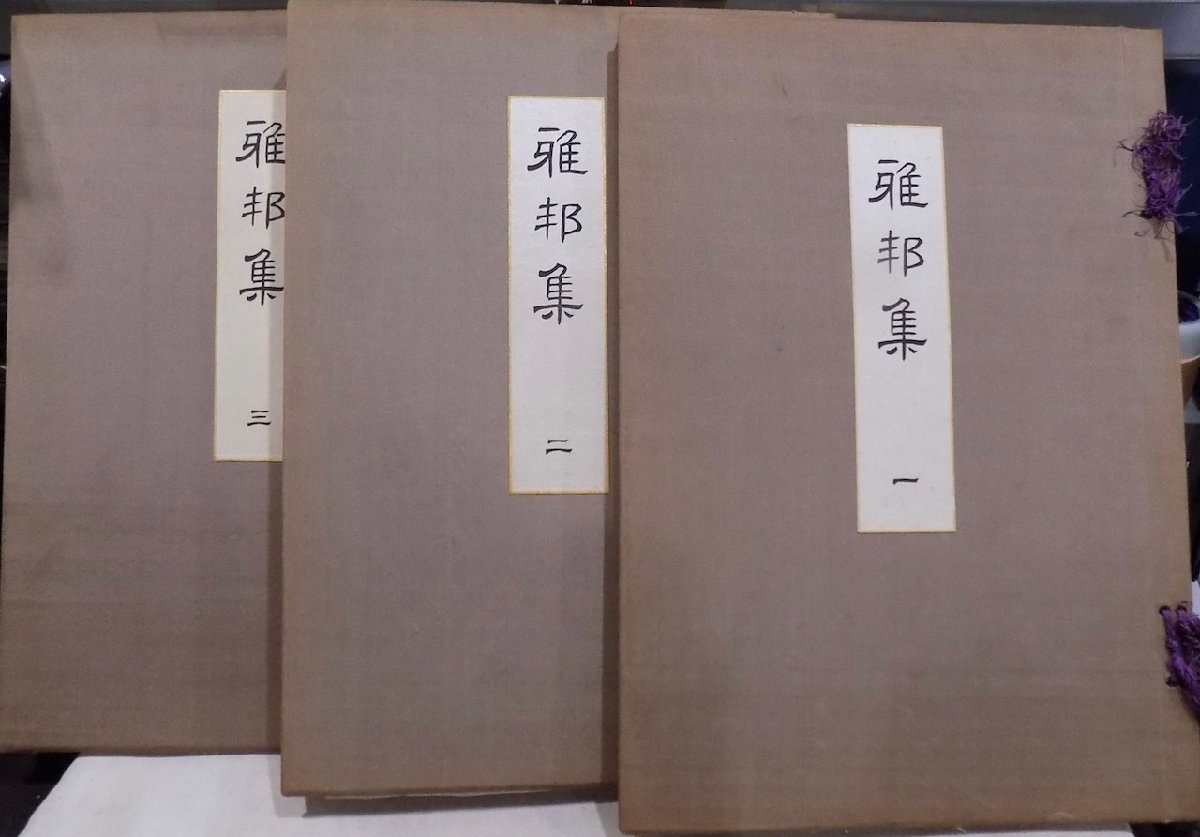 雅邦集 一
雅邦集 二
雅邦集 三